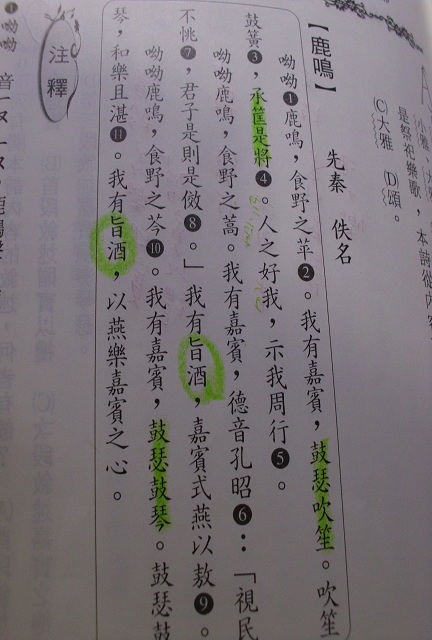 是祭祀樂歌，本詩從內容
(C)大雅 (D)頌。
【鹿鳴】 先秦 佚名
呦呦❶鹿鳴，食野之苹❷。我有嘉賓，鼓瑟吹笙。吹笙
鼓簧❸，承筐是將❹。人之好我，示我周行❺。
呦呦鹿鳴，食野之蒿。我有嘉賓，德音孔昭❻：「視民
不恌❼，君子是則是傚❽。」我有旨酒，嘉賓式燕以敖❾。
呦呦鹿鳴，食野之芩❿。我有嘉賓，鼓瑟鼓琴。鼓瑟鼓
琴，和樂且湛⓫。我有旨酒，以燕樂嘉賓之心。
注釋
❶呦呦 音ㄧㄡ ㄧㄡ